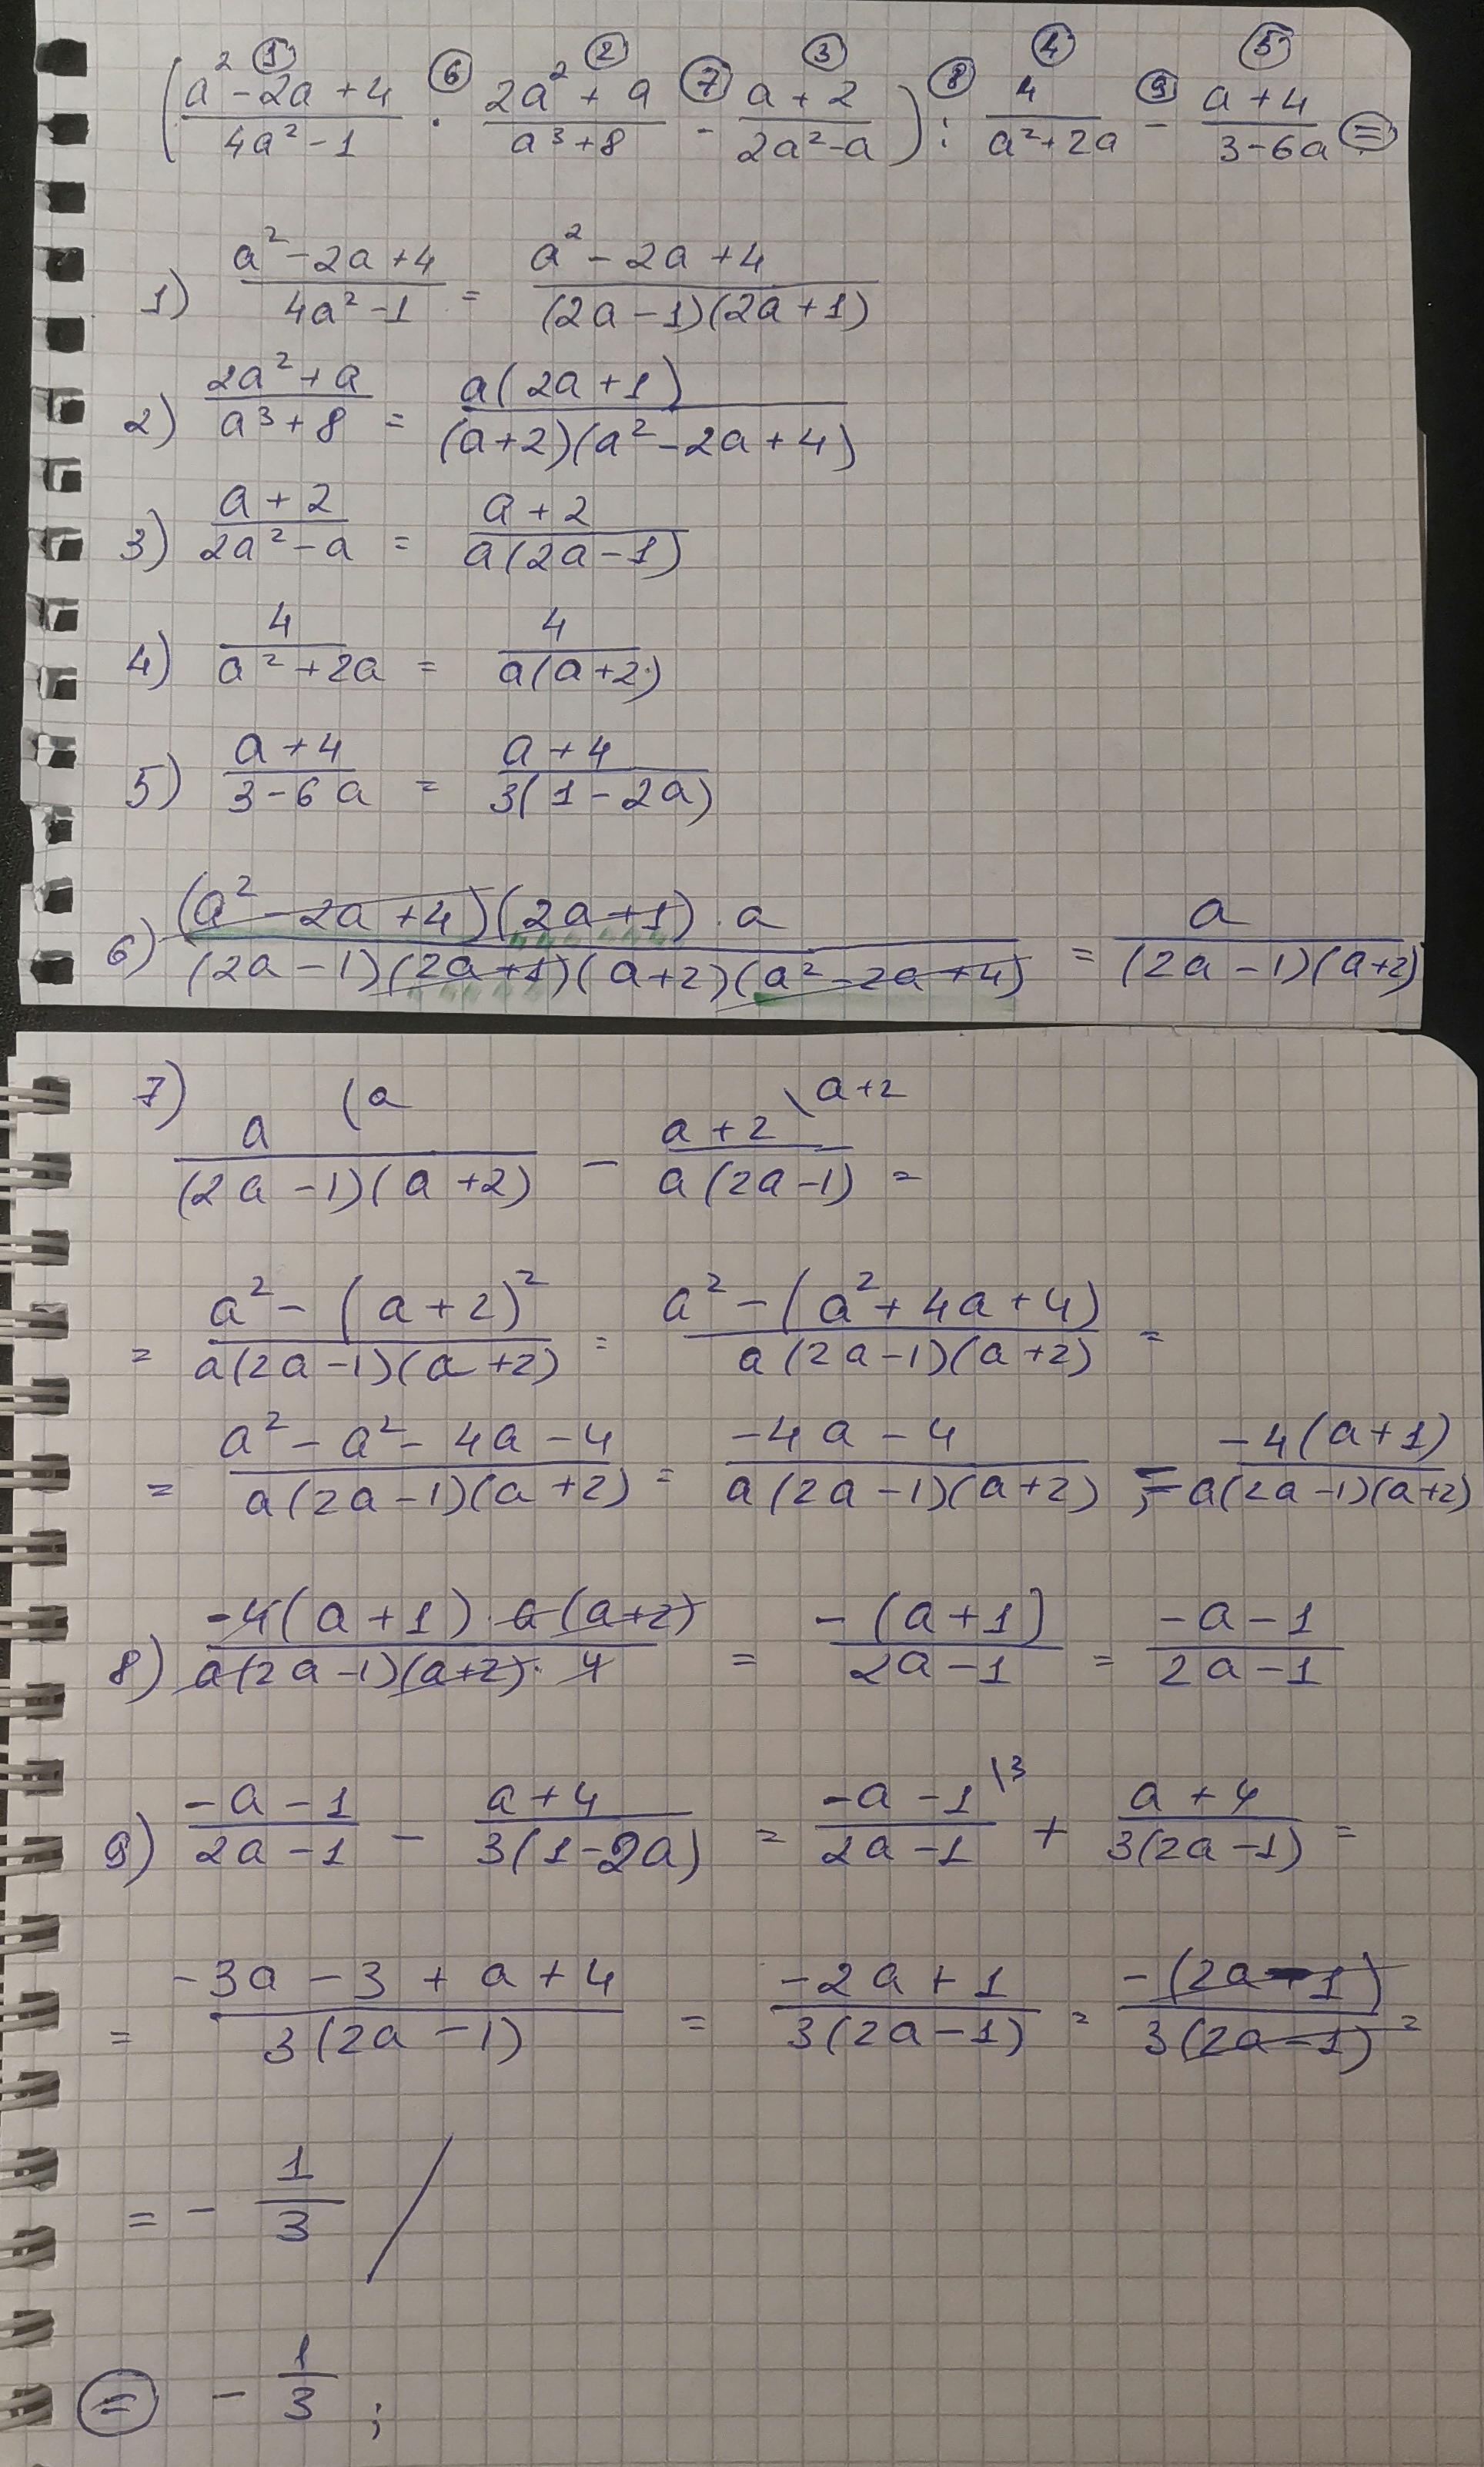 ① ⑥ ② ⑦ ③ ⑧ ④ ⑨ ⑤
(a²-2a+4)/(4a²-1) · (2a²+a)/(a³+8) - (a+2)/(2a²-a)) : 4/(a²+2a) - (a+4)/(3-6a) ⊜
1) (a²-2a+4)/(4a²-1) = (a²-2a+4)/((2a-1)(2a+1))
2) (2a²+a)/(a³+8) = a(2a+1)/((a+2)(a²-2a+4))
3) (a+2)/(2a²-a) = (a+2)/(a(2a-1))
4) 4/(a²+2a) = 4/(a(a+2))
5) (a+4)/(3-6a) = (a+4)/(3(1-2a))
6) (a²-2a+4)(2a+1)·a/((2a-1)(2a+1)(a+2)(a²-2a+4)) = a/((2a-1)(a+2))
7) a/((2a-1)(a+2)) (a - (a+2)/(a(2a-1)) \a+2 =
= (a²-(a+2)²)/(a(2a-1)(a+2)) = (a²-(a²+4a+4))/(a(2a-1)(a+2)) =
= (a²-a²-4a-4)/(a(2a-1)(a+2)) = (-4a-4)/(a(2a-1)(a+2)) ; = -4(a+1)/(a(2a-1)(a+2))
8) -4(a+1)·a(a+2)/(a(2a-1)(a+2)·4) = -(a+1)/(2a-1) = (-a-1)/(2a-1)
9) (-a-1)/(2a-1) - (a+4)/(3(1-2a)) = (-a-1)/(2a-1) \3 + (a+4)/(3(2a-1)) =
= (-3a-3+a+4)/(3(2a-1)) = (-2a+1)/(3(2a-1)) = -(2a-1)/(3(2a-1)) =
= - 1/3 /
⊜ - 1/3 ;